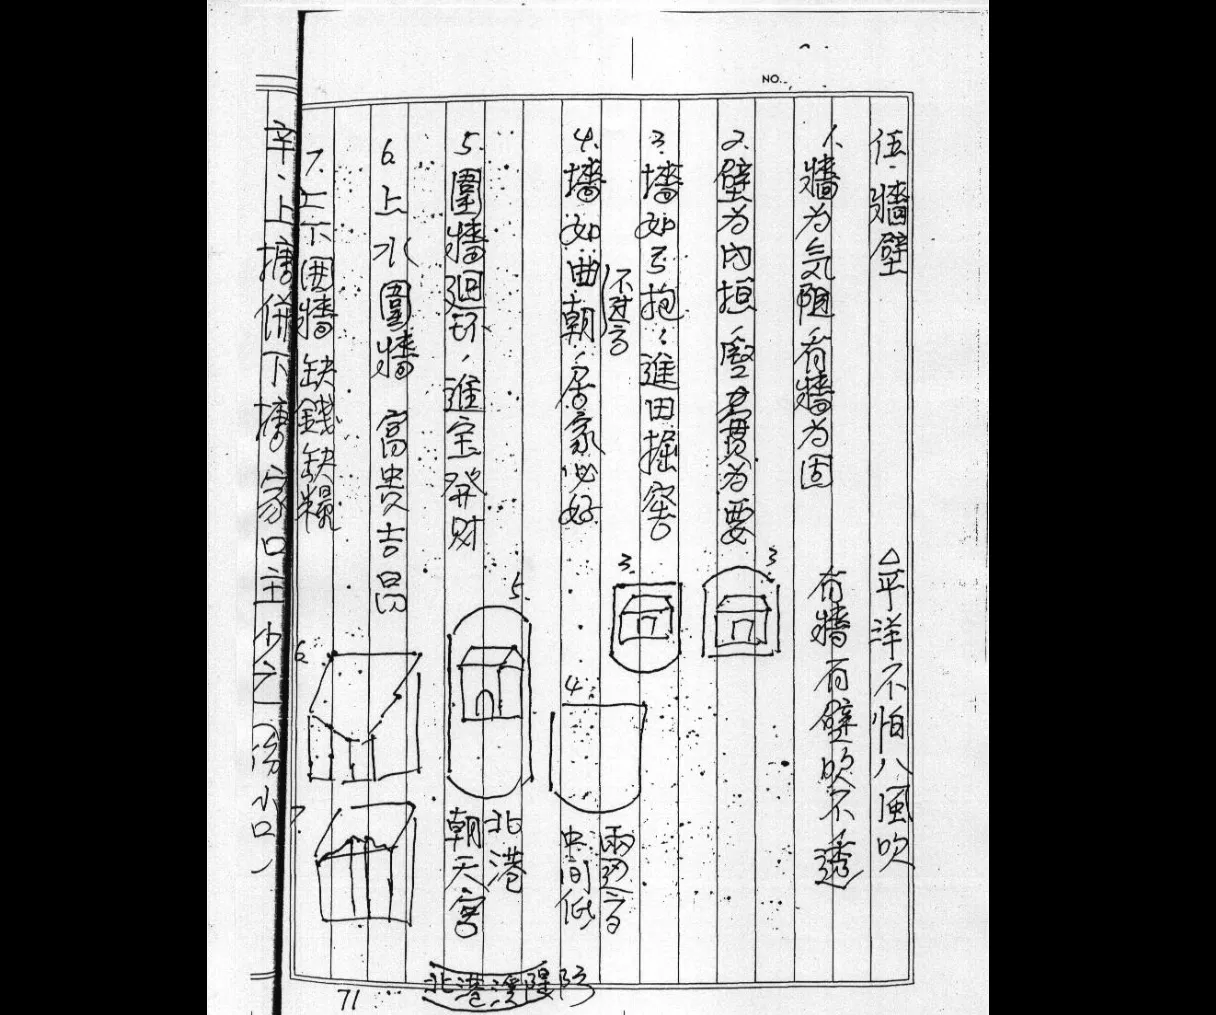 NO.
伍.牆壁
△平洋不怕八風吹
1.牆為气阻,有牆為固
有牆有壁吹不透
2.壁為內損,壁賣為要
3
3.墻如弓抱,進田掘窖
3.
不过高
4.墻如曲朝,居家必好
4.
兩边高
中间低
5.圍牆廻环,進宝發財
5.
北港
朝天宮
北港溪隄防
6.上水圍牆 富貴吉昌
6.
7.上下囲牆缺錢缺糧
7.
辛.上搪併下搪家口主少亡(傷小口)
71